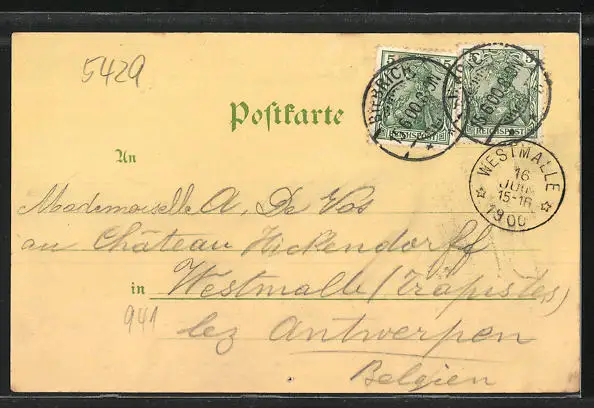 5429
Postkarte
5 5
REICHSPOST
5
REICHSPOST
BIEBRICH
WESTMALLE
16
JUIN
15-16
1900
An
Mademoiselle A. De Vos
au Château Hickendorff
in Westmalle (Trapistes)
941
lez Antwerpen
Belgien